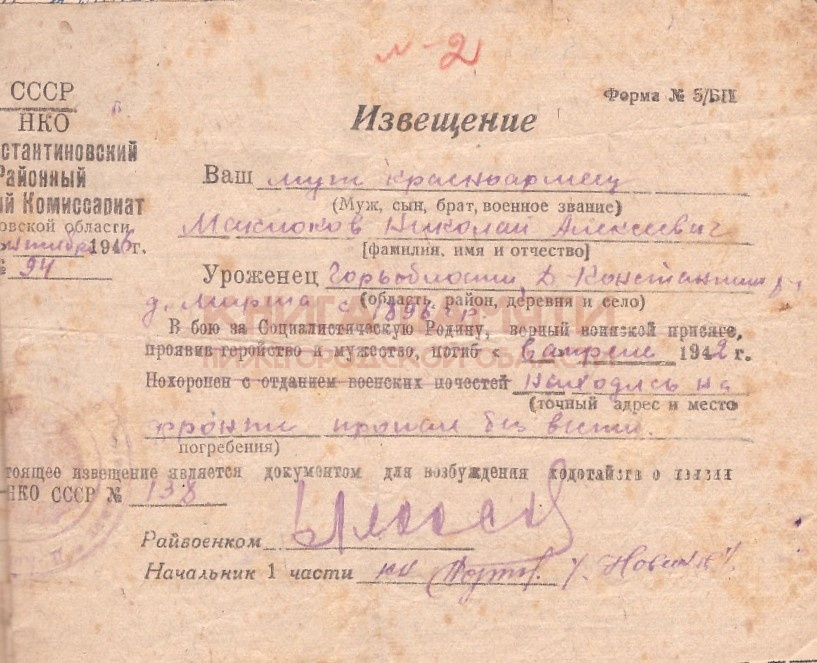 №-2
СССР
НКО
стантиновский
Районный
й Комиссариат
овской области
1946г.
94
Форма № 5/БП
Извещение
Ваш муж красноармеец
(Муж, сын, брат, военное звание)
Маклоков Николай Алексеевич
[фамилия, имя и отчество]
Уроженец Горьк области, Д-Константин р.
(область, район, деревня и село)
д. 1896 г.р.
КНИГА ПАМЯТИ
НИЖЕГОРОДСКОЙ ОБЛАСТИ
В бою за Социалистическую Родину, верный воинской присяге,
проявив геройство и мужество, погиб в апреле 1942 г.
Похоронен с отданием воинских почестей находясь на
(точный адрес и место
фронте пропал без вести.
погребения)
тоящее извещение является документом для возбуждения ходатайств о пенсии
НКО СССР № 138
Райвоенком
Начальник 1 части